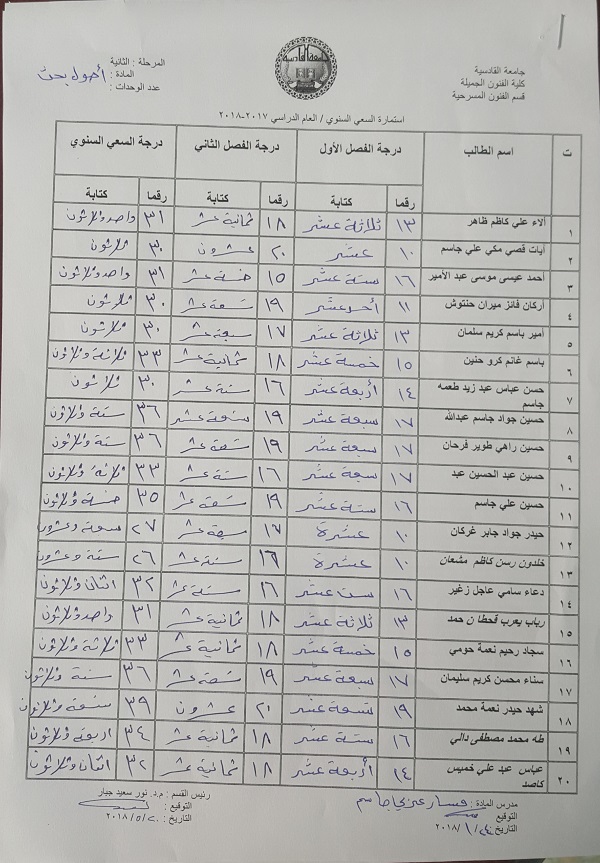 جامعة القادسية
كلية الفنون الجميلة
قسم الفنون المسرحية
المرحلة : الثانية
المادة : أصول بحث
عدد الوحدات :
استمارة السعي السنوي / العام الدراسي ٢٠١٧-٢٠١٨
ت اسم الطالب درجة الفصل الأول درجة الفصل الثاني درجة السعي السنوي
رقما كتابة رقما كتابة رقما كتابة
١ الاء علي كاظم ظاهر ١٣ ثلاثة عشر ١٨ ثمانية عشر ٣١ واحد وثلاثون
٢ ايات قصي مكي علي جاسم ١٠ عشر ٢٠ عشرون ٣٠ ثلاثون
٣ احمد عيسى موسى عبد الأمير ١٦ ستة عشر ١٥ خمسة عشر ٣١ واحد وثلاثون
٤ اركان فائز ميران حنتوش ١١ أحد عشر ١٩ تسعة عشر ٣٠ ثلاثون
٥ امير باسم كريم سلمان ١٣ ثلاثة عشر ١٧ سبعة عشر ٣٠ ثلاثون
٦ باسم غانم كرو حنين ١٥ خمسة عشر ١٨ ثمانية عشر ٣٣ ثلاثة وثلاثون
٧ حسن عباس عبد زيد طعمه جاسم ١٤ أربعة عشر ١٦ ستة عشر ٣٠ ثلاثون
٨ حسين جواد جاسم عبدالله ١٧ سبعة عشر ١٩ تسعة عشر ٣٦ ستة وثلاثون
٩ حسين راهي طوير فرحان ١٧ سبعة عشر ١٩ تسعة عشر ٣٦ ستة وثلاثون
١٠ حسين عبد الحسين عبد ١٧ سبعة عشر ١٦ ستة عشر ٣٣ ثلاثة وثلاثون
١١ حسين علي جاسم ١٦ ستة عشر ١٩ تسعة عشر ٣٥ خمسة وثلاثون
١٢ حيدر جواد جابر غركان ١٠ عشرة ١٧ سبعة عشر ٢٧ سبعة وعشرون
١٣ خلدون رسن كاظم مشعان ١٠ عشرة ١٦ ستة عشر ٢٦ ستة وعشرون
١٤ دعاء سامي عاجل زغير ١٦ ست عشر ١٦ ستة عشر ٣٢ اثنان وثلاثون
١٥ رباب يعرب قحطان حمد ١٣ ثلاثة عشر ١٨ ثمانية عشر ٣١ واحد وثلاثون
١٦ سجاد رحيم نعمة حومي ١٥ خمسة عشر ١٨ ثمانية عشر ٣٣ ثلاثة وثلاثون
١٧ سناء محسن كريم سليمان ١٧ سبعة عشر ١٩ تسعة عشر ٣٦ ستة وثلاثون
١٨ شهد حيدر نعمة محمد ١٩ تسعة عشر ٢٠ عشرون ٣٩ تسعة وثلاثون
١٩ طه محمد مصطفى دالي ١٦ ستة عشر ١٨ ثمانية عشر ٣٤ اربعة وثلاثون
٢٠ عباس عبد علي خميس كاصد ١٤ أربعة عشر ١٨ ثمانية عشر ٣٢ اثنان وثلاثون
مدرس المادة :
التوقيع
التاريخ : ٢٠١٨/
رئيس القسم : م.د. نور سعيد جبار
التوقيع :
التاريخ : ٢٠١٨/٥/٢٠